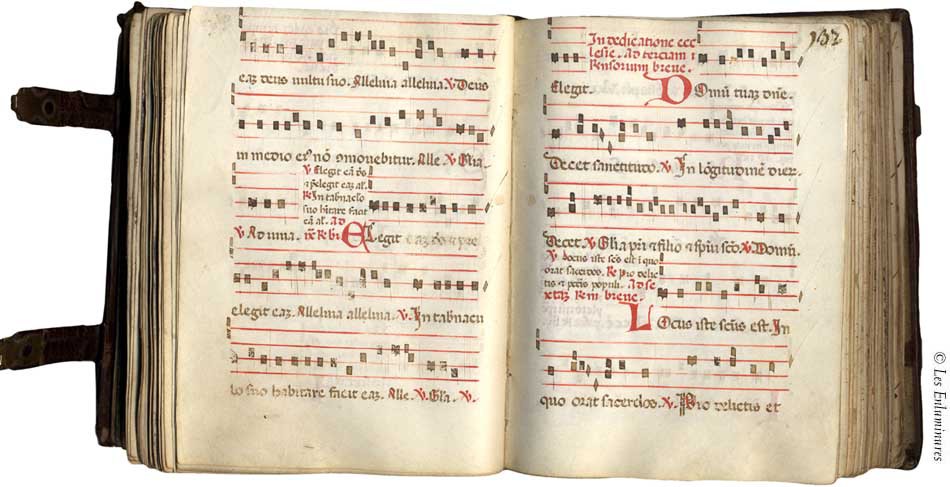 eaz deus vultu suo. Alleluia alleluia. V. Deus
in medio ei' nō ꝯmovebitur. Alle. V. Glia.
V. Elegit eā dō
⁊ p̄elegit eaz al.
R. In tabnaclo
suo hītare facit
eā al. Ad
V. Ad una. nē. R. bi Elegit eaz dō et pre
elegit eaz. Alleluia alleluia. V. In tabnacu
lo suo habitare facit eaz. Alle. V. Gla. V.
132
In dedicatione ecc
lesie. ad terciam
Responsorium breve.
Elegit. Domū tuaz dn̄e.
Decet sanctitudo. V. In lōgitudinē dier.
Decet. V. Glia pr̄i et filio et sp̄iu scō. V. Domū.
V. Locus iste scūs est i quo
orat sacerdos. R. Pro delic
tis et pctis populi. Ad se
xtaz. Rem breve.
Locus iste scūs est. In
quo orat sacerdos. V. Pro delictis et
© Les Enluminures